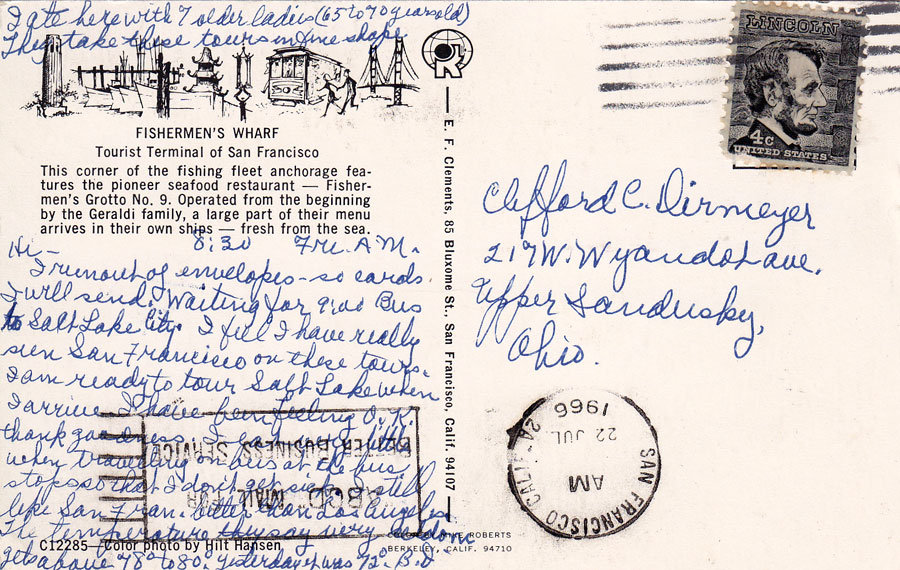 I ate here with 7 older ladies (65 to 70 years old)
They take these tours in fine shape
FISHERMEN'S WHARF
Tourist Terminal of San Francisco
This corner of the fishing fleet anchorage fea-
tures the pioneer seafood restaurant — Fisher-
men's Grotto No. 9. Operated from the beginning
by the Geraldi family, a large part of their menu
arrives in their own ships — fresh from the sea.
8:30 Fri. A.M.
Hi —
I run out of envelopes - so cards
I will send. Waiting for 9:00 Bus
to Salt Lake City. I feel I have really
seen San Francisco on these tours.
I am ready to tour Salt Lake when
I arrive. I have been feeling O.K.
thank goodness. I eat very little
when traveling on bus at the bus
stops so that I don't get sick. I still
like San Fran. better than Los Angeles.
The temperature they say very seldom
gets above 78° to 80°. Yesterday it was 72°. B.D
C12285—Color photo by Hilt Hansen
E. F. Clements, 85 Bluxome St., San Francisco, Calif. 94107
MIKE ROBERTS
BERKELEY, CALIF. 94710
LINCOLN
4c
UNITED STATES
Clifford C. Dirmeyer
217 W. Wyandot ave.
Upper Sandusky,
Ohio.
SAN FRANCISCO CALIF
AM
22 JUL
1966
ABCD MAIL FOR
BETTER BUSINESS SERVICE